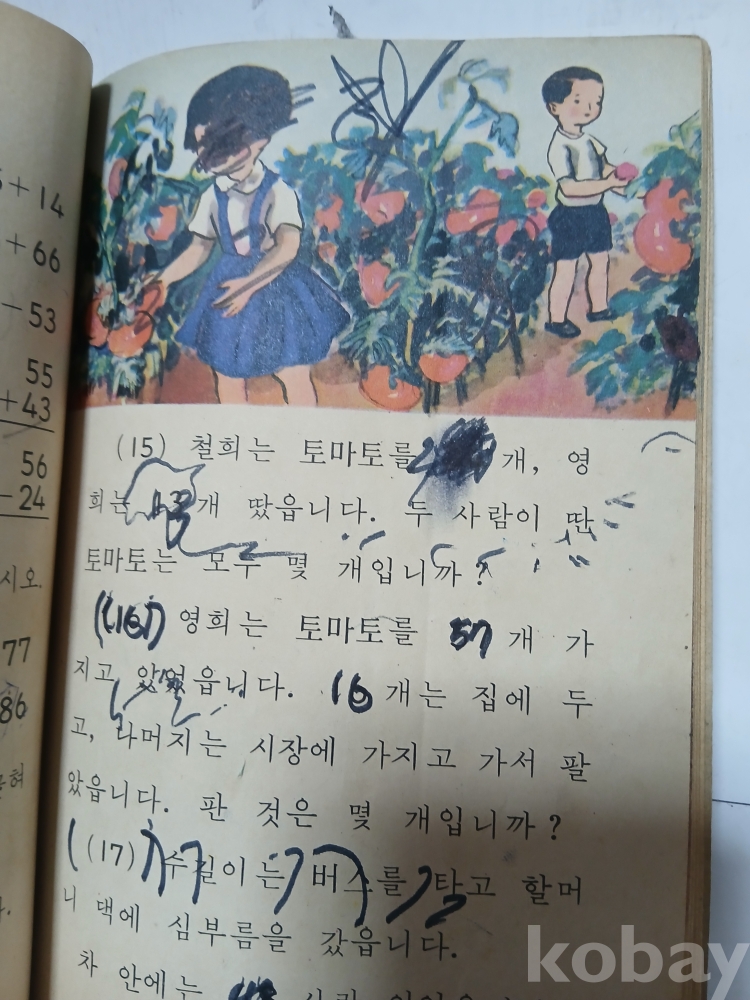 + 14
+ 66
- 53
55
+ 43
56
- 24
시오.
77
86
(15) 철희는 토마토를 개, 영
희는 개 땄읍니다. 두 사람이 딴
토마토는 모두 몇 개입니까?
(16) 영희는 토마토를 57 개 가
지고 았었읍니다. 16 개는 집에 두
고, 나머지는 시장에 가지고 가서 팔
았읍니다. 판 것은 몇 개입니까?
(17) 수길이는 버스를 타고 할머
니 댁에 심부름을 갔읍니다.
차 안에는
kobay